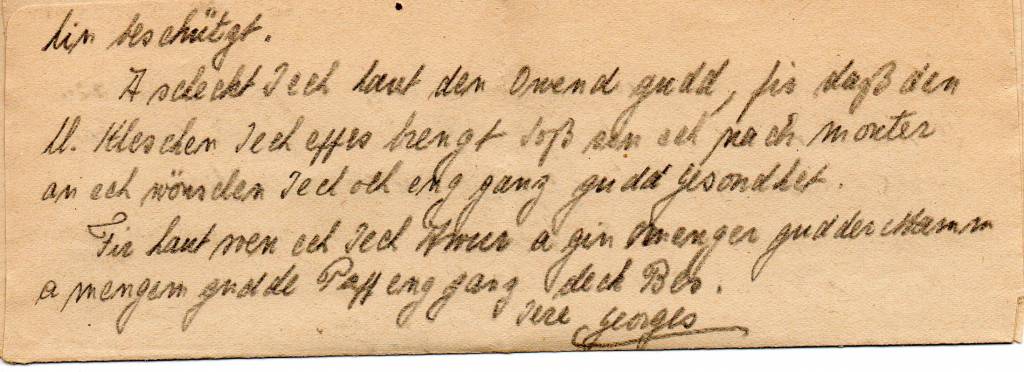 lin beschützt.
A scheckt Iech haut den Owend gudd, fir daß den
Kleschen Iech effes brengt Soß sen ech nach monter
an ech wönschen Iech och eng ganz gudd Gesondhet.
Fir haut ech Iech a gin menger gudder Mamm
a mengem gudde Papp eng ganz deck Bes.
Iere Georges